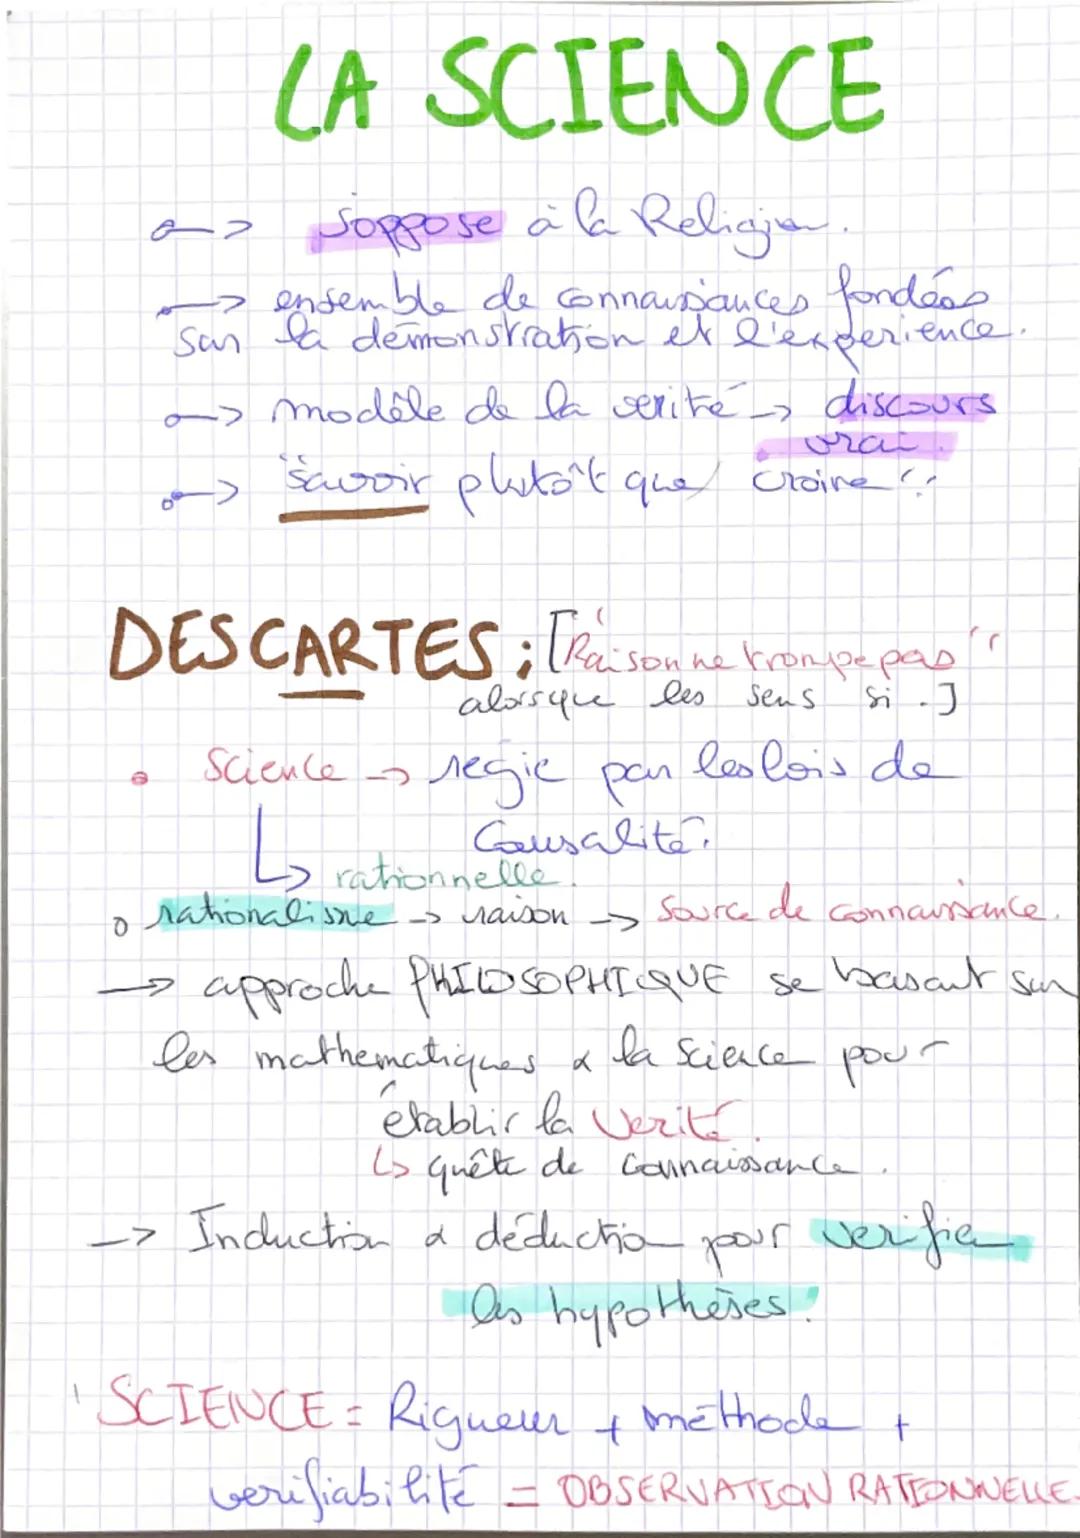 LA SCIENCE
-> s'oppose à la Religion.
-> ensemble de connaissances fondées
sur la démonstration et l'experience.
-> modèle de la verité -> discours
vrai.
-> "savoir plutôt que croire".
DESCARTES ; ["Raison ne trompe pas"
alors que les sens si.]
• Science -> régie par les lois de
Causalité.
↳ rationnelle.
o rationalisme -> raison -> Source de connaissance.
-> approche PHILOSOPHIQUE se basant sur
les mathematiques & la Science pour
établir la Verité.
↳ quête de Connaissance.
-> Induction & déduction pour verifier
les hypothèses.
SCIENCE = Rigueur + méthode +
verifiabilité = OBSERVATION RATIONNELLE.